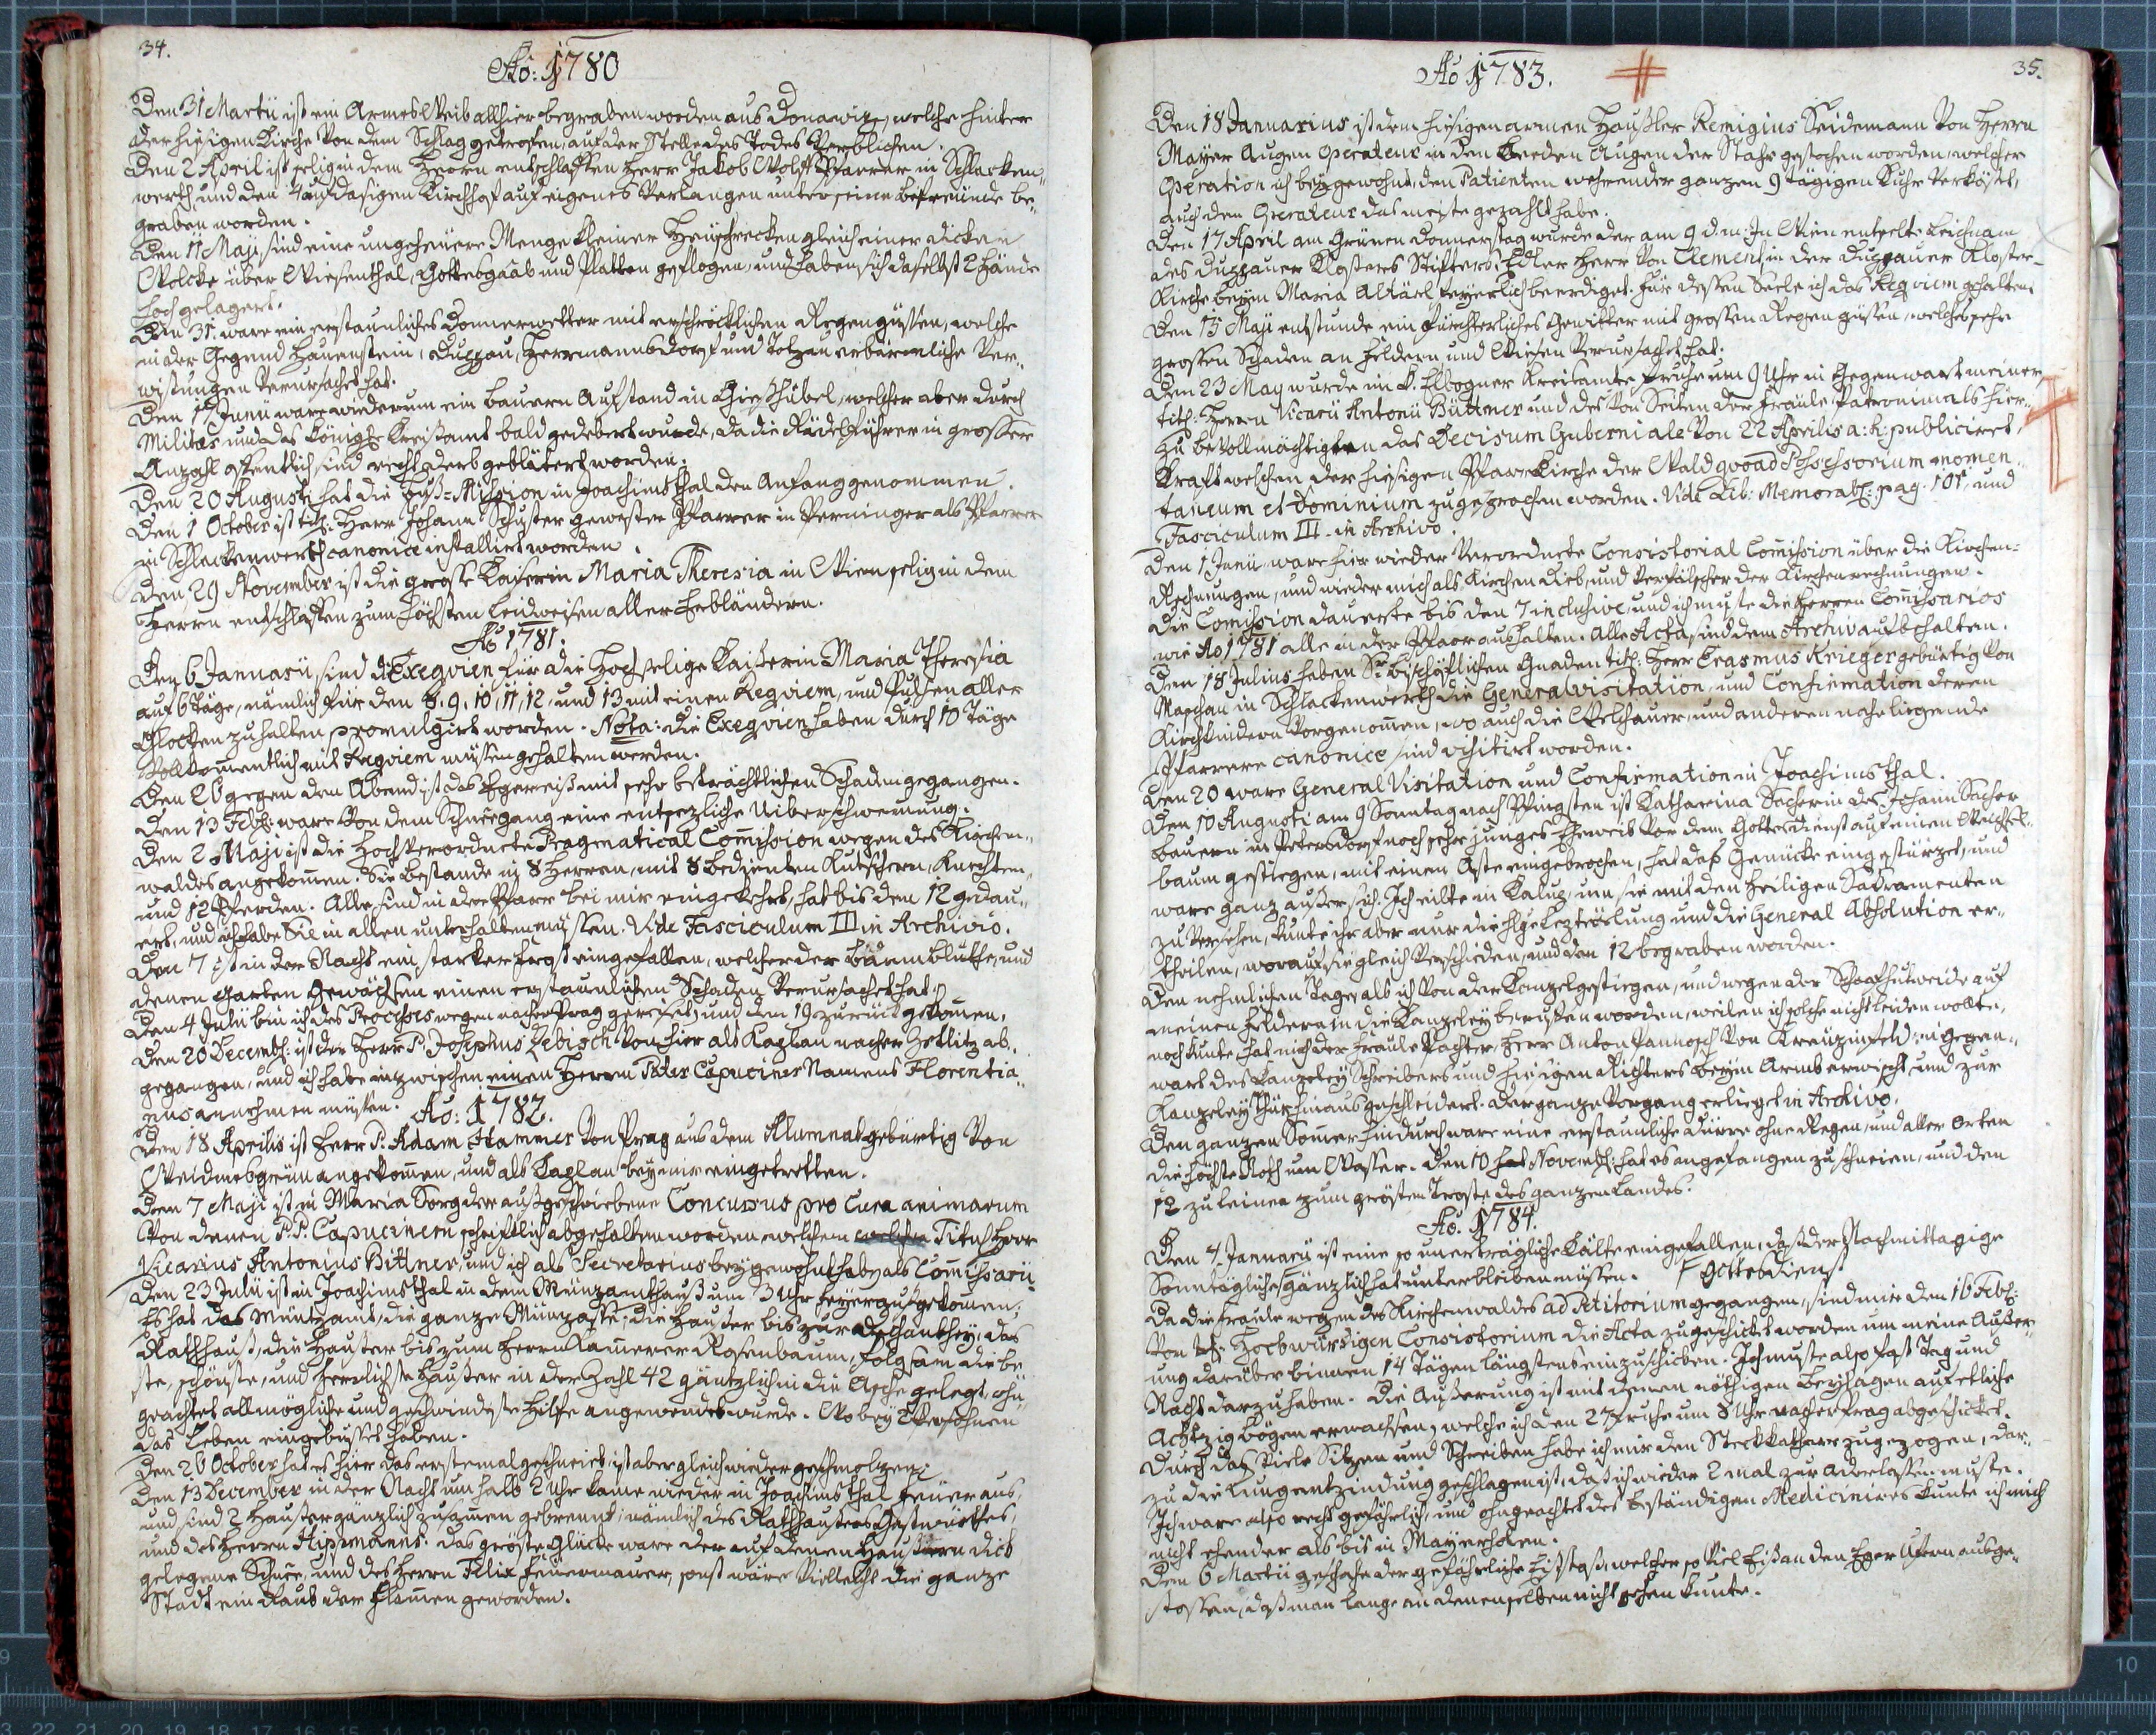 34.
Ao: 1780
Den 31 Martii ist ein Armes Weib allhier begraben worden aus Donawiz, welche hinter
der hiesigen Kirche von dem Schlag getrofen, auf der Stelle des Todes Verblichen.
Den 2 April ist selig in dem Herrn entschlaffen Herr Jakob Wolff Pfarrer in Schlacken-
werth, und den 4 auf dasigen Kirchhof auf eigenes Verlangen unter seine befreünde be-
graben worden.
Den 11 Maji sind eine ungeheüere Menge kleiner Heüschrecken gleich einer dicken
Wolcke über Wiesenthal, Gottesgaab und Platten geflogen, und haben sich daselbst 2 Hände
hoch gelagert.
Den 31. ware ein erstaunliches Donnerwetter mit erschröcklichen Regengüssen, welche
in der Gegend Hauenstein, Duppau, Herrmannsdorf und Totzau erbärmliche Ver-
wistungen Verursachet hat.
Den 17 Junii ware wiederum ein bauern Aufstand in Gießhübel, welcher aber durch
Militær und das Königl: Kreißamt bald gedebert wurde, da die Rädelführer in grosser
Anzahl öffentlich sind recht derb geblätert worden.
Den 20 Augusti hat die Buß-Mission in Joachimsthal den Anfang genommen.
Den 1 October ist tit: Herr Johann Schuster gewester Pfarrer in Verninger als Pfarrer
in Schlackenwerth canonice installirt worden.
Den 29 November ist die grosse Kaiserin Maria Theresia in Wien selig in dem
Herrn entschlaffen zum höchsten Leidweisen aller Erbländern.
Ao 1781.
Den 6 Januarii sind d: Exequien für die Hochselige Kaißerin Maria Theresia
auf 6 Täge, nämlich für den 8. 9. 10, 11, 12, und 13 mit einen Requiem, und Pulsen aller
Glocken zu halten promulgirt worden. Nota: die Exequien haben durch 10 Täge
Vollkomentlich mit Requiem müssen gehalten werden.
Den 26 gegen den Abend ist das Egereiß mit sehr beträchtlichen Schaden gegangen.
Den 13 Feb: ware von dem Schneegang eine entsezliche Uiberschwemung.
Den 2 Maji ist die Hoch Verordnete Pragmatical Comission wegen des Kirchen-
waldes angekomen. Sie bestande in 8 Herren, mit 8 bedienten Kutschern, Knechten,
und 12 Pferden. Alle sind in der Pfarr bei mir eingekehrt, hat bis den 12 gedau-
ert, und ich habe Sie in allen unterhalten müssen. Vide Fasciculum III in Archivio.
Den 7 ist in der Nacht ein starker Frost eingefallen, welcher der Bäumbluthe, und
denen Garten Gewächsen einen erstaunlichen Schaden Verursachet hat.
Den 4 Julii bin ich des Processes wegen nacher Prag gereiset, und den 19 zurück gekomen.
Den 20 Decemb: ist der Herr P. Josephus Zebisch von hier als Kaplan nacher Zettlitz ab-
gegangen, und ich habe inzwischen einen Herrn Pater Capuciner Namens Florentia-
nus annehmen müssen.
Ao: 1782.
Den 18 Aprilis ist Herr P. Adam Hammer von Prag aus dem Alumnat gebürtig von
Weidmesgrün angekomen, und als Caplan bey mir eingetretten.
Den 7 Maji ist in Maria Sorg der außgeschriebene Concursus pro Cura animarum
Von denen P.P. Capucinern schriftlich abgehalten worden, welchem Titul Herr
Vicarius Antonius Bittner, und ich als Secretarius beygewohnt habe als Comissarii
Den 23 Julii ist in Joachimsthal in dem Münzamthauß um 3 Uhr Feyer außgekomen.
Es hat das Müntzamt, die ganze Münzgasse, die Haußer bis zur Dechanthey, das
Rathhauß, die Haußer bis zum Herrn Kamerer Rosenbaum, folgsam die be-
ste, schönste, und herrlichste Haußer in der Zahl 42 gäntzlich in die Asche gelegt, ohn-
geachtet all mögliche und geschwindeste Hilfe angewendet wurde. Wobey 2 Persohnen
das Leben eingebüsset haben.
Den 26 October hat es hier das erstemal geschneiet, ist aber gleich wieder geschmolzen.
Den 13 December in der Nacht um halb 2 Uhr kame wieder in Joachimsthal Feüer aus,
und sind 2 Haußer gänzlich zusamen gebrennt, nämlich des Rathhausers Gastwürthes,
und des Herrn Hippmanns. Das gröste Glücke ware der auf denen Haußern dick
gelegene Schnee, und des Herrn Felix Feüermauer, sonst wäre Vielleicht die ganze
Stadt ein Raub der Flamen geworden.
35.
Ao 1783.
Den 18 Januarius ist dem hiesigen armen Haußler Remigius Seidemann von Herrn
Mayer Augen Operateur in den beeden Augen der Stahr gestochen worden, welcher
Operation ich beygewohnt, den Patienten wehrender ganzen 9 tägigen Kuhr Verköstet,
auch dem Operateur das meiste gezahlt habe.
Den 17 April am Grünen Donnerstag wurde der am 9 d. m: in Wien entselte Leichnam
des Duppauer Klosters Stifters, Edler Herr Von Clement, in der Duppauer Kloster-
Kirche beym Maria Altärl feyerlich beerdiget. Für dessen Seele ich das Requiem gehalten.
Den 13 Maji entstunde ein fürchterliches Gewitter mit grossen Regengüssen, welches sehr
grossen Schaden an Feldern und Wiesen Verursachet hat.
Den 23 May wurde im K. Elbogner Kreisamte fruhe um 9 Uhr in Gegenwart meiner,
tit: Herrn Vicarii Antonii Büttner und des von Seiten der Fraule Patronin als hier-
zu bevollmächtigten das Decisum Guberniale von 22 Aprilis a: h: publiciret,
Kraft welchen der hiesigen PfarrKirche der Wald quoad Possessorium momen-
taneum et Dominium zugesprochen worden. Vide Lib: Memorab: pag. 101, und
Fasciculum III. in Archivo.
Den 1 Junii ware hier wieder Verordnete Consistorial Comission über die Kirchen-
Rechnungen, und wieder mich als Kirchen dieb, und Verfälscher der Kirchenrechnungen.
Die Comission dauerte bis den 7 inclusive, und ich muste die Herren Comissarios
wie Ao 1781 alle in der Pfarr aushalten. Alle Acta sind dem Archiv aufbehalten.
Den 18 Julius haben Sr. bischöflichen Gnaden tit: Herr Erasmus Krieger gebürtig von
Maschau in Schlackenwerth die Generalvisitation, und Confirmation deren
Kirchkindern Vorgenomen, wo auch die Welchauer, und anderen nahe liegende
Pfarrere canonice sind visitirt worden.
Den 20 ware General Visitation und Confirmation in Joachimsthal.
Den 10 Augusti am 9 Sonntag nach Pfingsten ist Katharina Sacherin des Johann Sacher
Bauern in Petersdorf noch sehr junges Eheweib vor dem Gottesdienst auf einen Weichsel-
baum gestiegen, mit einen Aste eingebrochen, hat das Genücke eingestürzet, und
ware ganz ausser sich. Ich eilte in Kaluz, um sie mit den Heiligen Sakramenten
zu versehen, kunte ihr aber nur die hlge Lezteölung und die General Absolution er-
theilen, worauf sie gleich Verschieden, und den 12 begraben worden.
Den nehmlichen Tage, als ich von der Kanzel gestiegen, und wegen der Schaafhutweide auf
meinen Feldern in die Kanzeley beruffen worden, weilen ich solche nicht leiden wollte,
noch kunte, hat mich der Fraule Pachter, Herr Anton Jannosch von Kreüzinfeld in gegen-
wart des Kanzeley Schreibers und hiesigen Richters beym Arm erwischt, und zur
Kanzeley thür hinaus geschleidert. Der ganze Vorgang erlieget in Archivo.
Den ganzen Somer hindurch ware eine erstaunliche dürre ohne Regen, und aller Orten
die höchste Noth um Wasser. Den 10 Novemb: hat es angefangen zu schneien, und den
12 zu leinen zum grösten Troste des ganzen Landes.
Ao. 1784.
Den 4. Januarii ist eine so unerträgliche Kälte eingefallen, daß der Nachmittagige
Sonntägliche gänzlich hat unterbleiben müssen. Gottesdienst
Da die Fraule wegen des Kirchenwaldes ad Petitorium gegangen, sind mir den 16 Feb:
Von Hochwürdigen Consistorium die Acta zugeschicket worden um meine Aüßer-
ung darüber binnen 14 Tägen längstens einzuschicken. Ich muste also fast Tag und
Nacht darzu haben. Die Aüßerung ist mit denen nöthigen Beylagen auf etliche
Achtzig bögen erwachsen, welche ich den 27 fruhe um 8 Uhr nacher Prag abgeschicket.
Durch das viele Sitzen und Schreiben habe ich mir den Steckkatharr zugezogen, dar-
zu die Lungentzindung geschlagen ist, daß ich wieder 2 mal zur Aderlassen muste.
Ich ware also recht gefährlich, und ohngeachtet des beständigen Medicinirens kunte ich mich
nicht ehender als bis in May erholen.
Den 6 Martii geschahe der gefährliche Eißstoß, welcher so viel Eiß an den Eger Ufern ausge-
stossen, daß man lange an denenselben nicht gehen kunte.